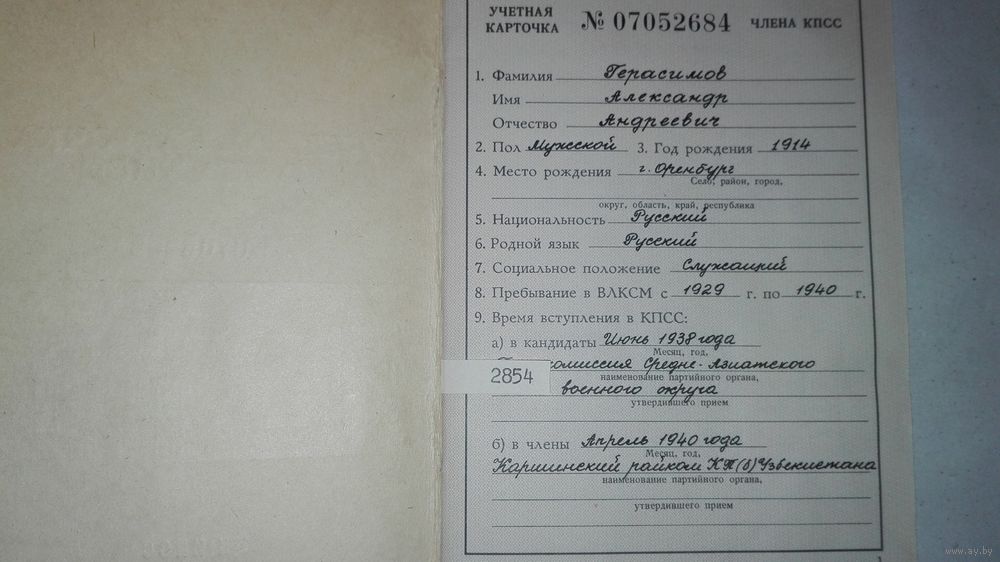 УЧЕТНАЯ КАРТОЧКА № 07052684 ЧЛЕНА КПСС
1. Фамилия Герасимов
Имя Александр
Отчество Андреевич
2. Пол Мужской 3. Год рождения 1914
4. Место рождения г. Оренбург
Село, район, город,
округ, область, край, республика
5. Национальность Русский
6. Родной язык Русский
7. Социальное положение Служащий
8. Пребывание в ВЛКСМ с 1929 г. по 1940 г.
9. Время вступления в КПСС:
а) в кандидаты Июнь 1938 года
Месяц, год,
комиссия Средне-Азиатского
наименование партийного органа,
2854
военного округа
утвердившего прием
б) в члены Апрель 1940 года
Месяц, год,
Каршинский райком КП(б) Узбекистана
наименование партийного органа,
утвердившего прием
www.ay.by